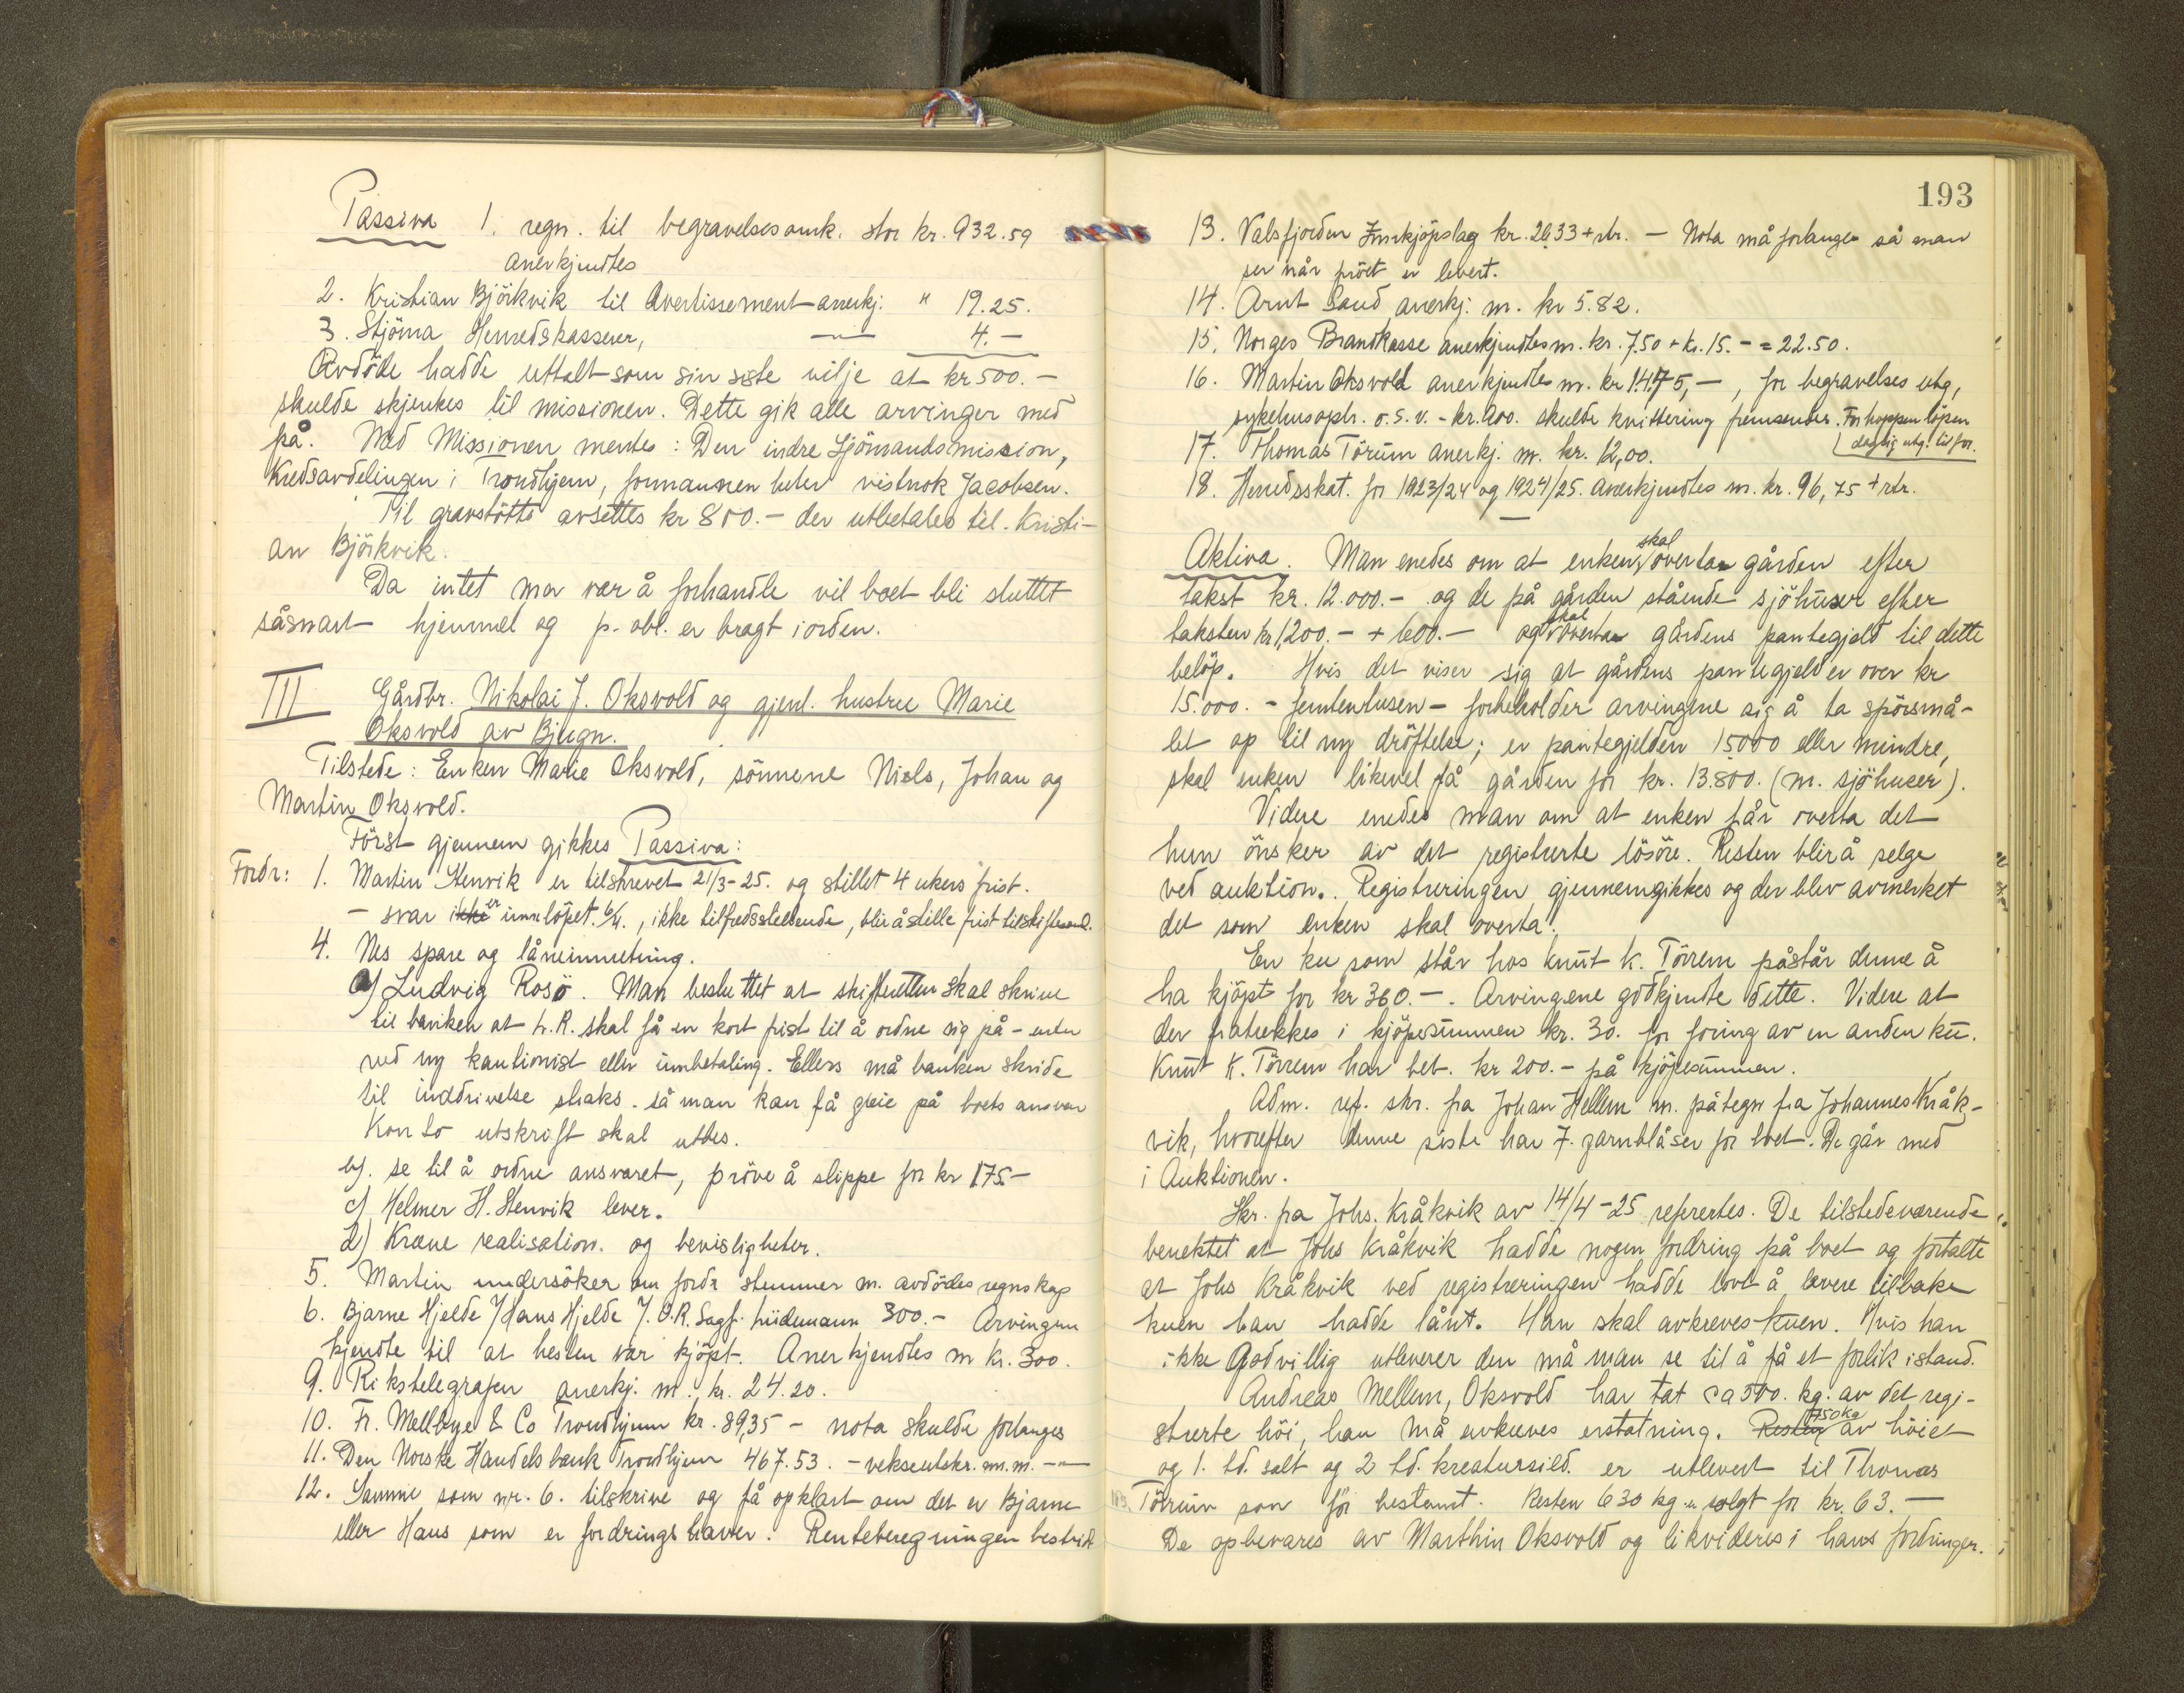 Passiva 1. regn. til begravelsesomk. stor kr. 932.59
anerkjendtes
2. Kristian Björkvik til Avertissement anerkj. " 19.25.
3. Stjörna Herredskasserer, —"— 4.—
Avdöde hadde uttalt som sin siste vilje at kr 500.—
skulde skjenkes til missionen. Dette gik alle arvinger med
på. Med Missionen mentes: Den indre Sjömandsmission,
Kredsavdelingen i Trondhjem, formannen heter vistnok Jacobsen.
Til gravstötte avsettes kr 800.— der utbetales til Kristi-
an Björkvik.
Da intet mer var å forhandle vil boet bli sluttet
såsnart hjemmel og p. obl. er bragt i orden.
III Gårdbr. Nikolai J. Oksvold og gjenl. hustru Marie
Oksvold av Bjugn.
Tilstede: Enken Marie Oksvold, sönnene Niels, Johan og
Martin Oksvold.
Först gjennem gikkes Passiva:
Fordr: 1. Martin Stenvik er tilskrevet 21/3-25. og stillet 4 ukers frist.
— svar ikke er innlöpet 6/4., ikke tilfredsstillende, blir å stille frist til skiftesaml.
4. Nes spare og låneinnretning.
a) Ludvig Rosö. Man besluttet at skifteretten skal skrive
til banken at L.R. skal få en kort frist til å ordne sig på - enten
ved ny kautionist eller innbetaling. Ellers må banken skride
til inddrivelse straks. så man kan få greie på boets ansvar
Konto utskrift skal uttes.
b). se til å ordne ansvaret, pröve å slippe for kr 175.—
c) Helmer H. Stenvik lever.
d) Kræve realisation. og bevisligheter.
5. Martin undersöker om fordr stemmer m. avdödes regnskap
6. Bjarne Hjelde / Hans Hjelde / O.R. Sagf. 300.— Arvingene
kjendte til at hesten var kjöpt. Anerkjendtes m kr. 300.
9. Rikstelegrafen anerkj. m. kr. 24.20.
10. Fr. Mellbye & Co Trondhjem kr. 89,35 — nota skulde forlanges
11. Den Norske Handelsbank Trondhjem 467.53. — vekselutskr. m.m. —"—
12. Samme som nr. 6. tilskrive og få opklart om det er Bjarne
eller Hans som er fordringshaver. Renteberegningen bestrid
193
13. Valsfjorden Innkjöpslag kr. 26,33 + rtr. — Nota må forlanges så man
ser når pröet er levert.
14. Arnt Sand anerkj. m. kr 5.82.
15. Norges Brandkasse anerkjendtes m. kr. 7.50 + kr. 15.— = 22.50.
16. Martin Oksvold anerkjendtes m. kr 1475,—, for begravelses utg,
sykehusoph. o.s.v. - kr. 200. skulde kvittering fremsendes. Forhoppen löpen
daglig utg. til for.
17. Thomas Törüm anerkj. m. kr. 12,00.
18. Herredsskat. for 1923/24 og 1924/25. anerkjendtes m. kr. 96,75 + rtr.
Aktiva. Man enedes om at enken skal overta gården efter
takst kr. 12.000.— og de på gården stående sjöhuser efter
taksten kr 1,200.— + 600.— og skal overta gårdens pantegjeld til dette
belöp. Hvis det viser sig at gårdens pantegjeld er over kr
15.000.— femtentusen — forbeholder arvingene sig å ta spörsmå-
let op til ny dröftelse; er pantegjelden 15000 eller mindre,
skal enken likevel få gården for kr. 13.800. (m. sjöhuser).
Videre enedes man om at enken får overta det
hun önsker av det registrerte lösöre. Resten blir å selge
ved auktion. Registreringen gjennemgikkes og der blev avmerket
det som enken skal overta.
En ku som står hos Knut K. Törrem påstår denne å
ha kjöpt for kr 360.—. Arvingene godkjendte dette. Videre at
der fratrekkes i kjöpesummen kr. 30. for foring av en anden ku.
Knut K. Törrem har bet. kr 200.— på kjöpesummen.
Adm. ref. skr. fra Johan Hellem m. påtegn fra Johannes Kråk-
vik, hvorefter denne siste har 7. garnblåser for boet. De går med
i Auktionen.
Skr. fra Johs. Kråkvik av 14/4-25 refrertes. De tilstedeværende
benektet at Johs Kråkvik hadde nogen fordring på boet og fortalte
at Johs Kråkvik ved registreringen hadde lovt å levere tilbake
kuen han hadde lånt. Han skal avkreves kuen. Hvis han
ikke godvillig utleverer den må man se til å få et forlik istand.
Andreas Mellem, Oksvold har tat ca 500. kg. av det regi-
strerte höi, han må avkreves erstatning. Resten 750 kg av höiet
og 1. td. salt og 2 td. kreatursild. er utlevert til Thomas
Törrüm som för bestemt. Resten 630 kg er solgt for kr. 63.—
De opbevares av Marthin Oksvold og likvideres i hans fordringer.